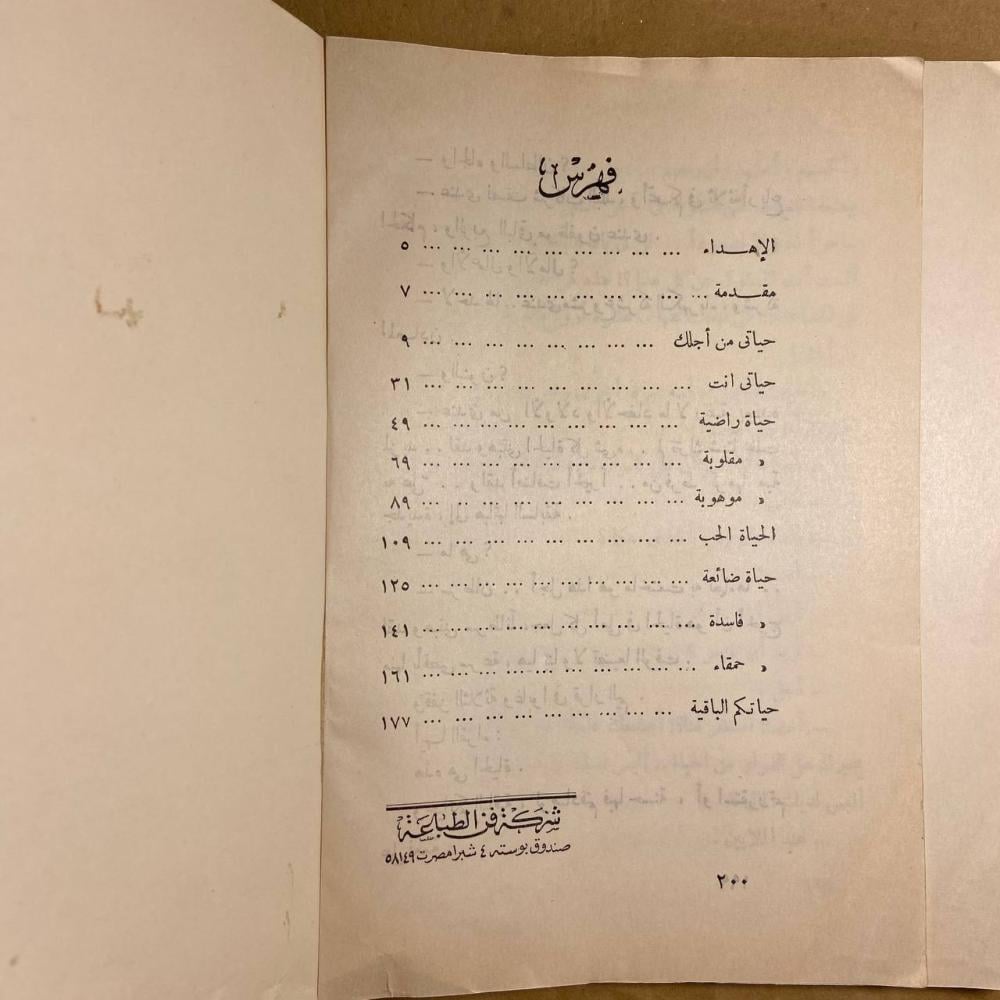 فهرس
الإهداء ... ... ... ... ... ... ... ... ... ٥
مقدمة ... ... ... ... ... ... ... ... ... ... ٧
حياتى من أجلك ... ... ... ... ... ... ... ... ٩
حياتى انت ... ... ... ... ... ... ... ... ... ٣١
حياة راضية ... ... ... ... ... ... ... ... ... ٤٩
« مقلوبة ... ... ... ... ... ... ... ... ... ٦٩
« موهوبة ... ... ... ... ... ... ... ... ... ٨٩
الحياة الحب ... ... ... ... ... ... ... ... ... ١٠٩
حياة ضائعة ... ... ... ... ... ... ... ... ... ١٢٥
« فاسدة ... ... ... ... ... ... ... ... ... ١٤١
« حمقاء ... ... ... ... ... ... ... ... ... ١٦١
حياتكم الباقية ... ... ... ... ... ... ... ... ١٧٧
شركة فن الطباعة
صندوق بوسته ٤ شبرا مصر ت ٥٨١٤٩
٢٠٠